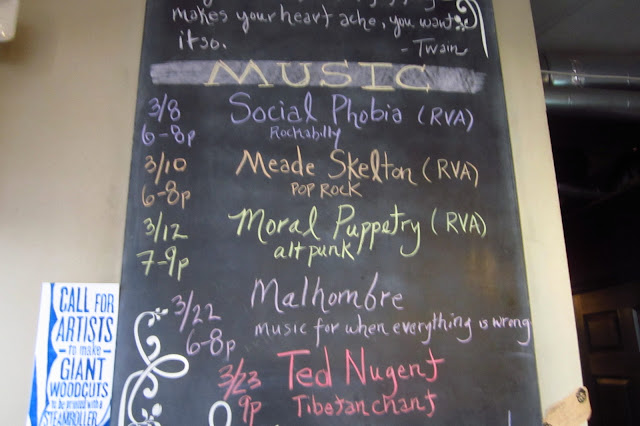 makes your heart ache, you want
it so.
- Twain
MUSIC
3/8 Social Phobia (RVA)
6-8p Rockabilly
3/10 Meade Skelton (RVA)
6-8p POP ROCK
3/12 Moral Puppetry (RVA)
7-9p alt punk
3/22 Malhombre
6-8p music for when everything is wrong
3/23 Ted Nugent
9p Tibetan chant
CALL FOR
ARTISTS
to make
GIANT
WOODCUTS
to be printed with a
STEAMROLLER